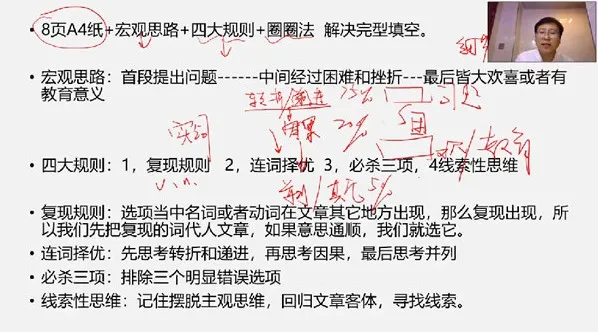 • 8页A4纸+宏观思路+四大规则+圈圈法 解决完型填空。
细
• 宏观思路：首段提出问题------中间经过困难和挫折---最后皆大欢喜或者有
教育意义
转折/递进 75%
问题
实词
因果 20%
5团
• 四大规则：1，复现规则 2，连词择优 3，必杀三项，4线索性思维
v. n.
并列/其它 5%
• 复现规则：选项当中名词或者动词在文章其它地方出现，那么复现出现，所
以我们先把复现的词代人文章，如果意思通顺，我们就选它。
• 连词择优：先思考转折和递进，再思考因果，最后思考并列
• 必杀三项：排除三个明显错误选项
• 线索性思维：记住摆脱主观思维，回归文章客体，寻找线索。